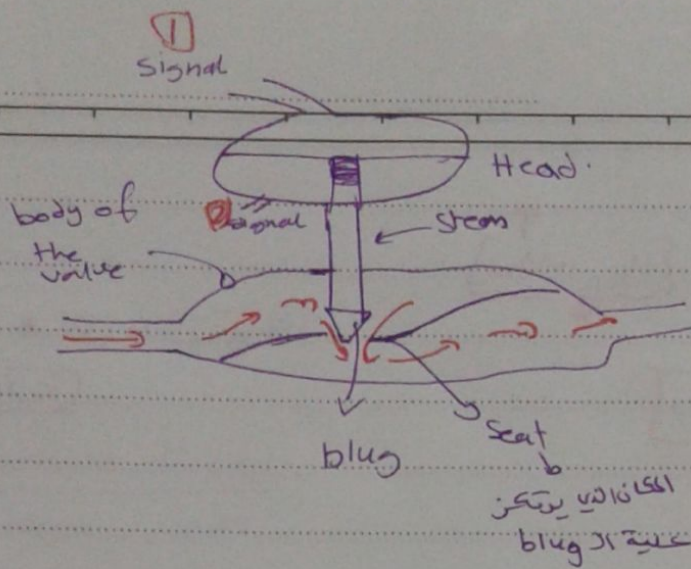 1
Signal
Head.
body of
the
value
2 signal
steam
blug
Seat
المكان الذي يرتكز
علية الـ blug